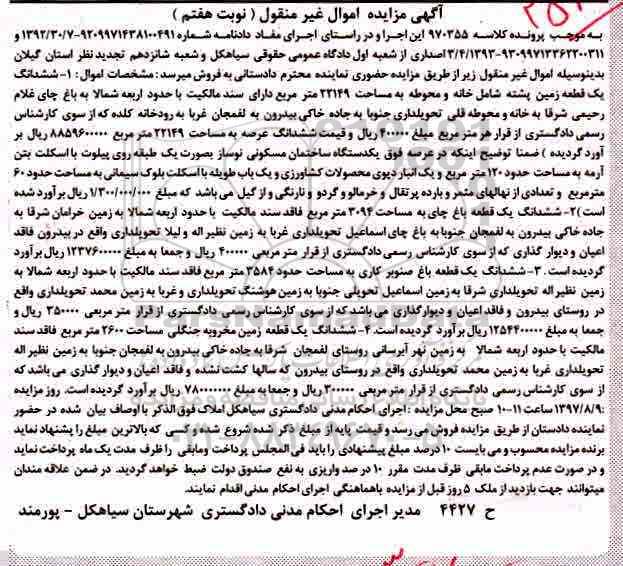 آگهی مزایده اموال غیر منقول ( نوبت هفتم )
به موجب پرونده کلاسه ۹۷۰۳۵۵ این اجرا و در راستای اجرای مفاد دادنامه شماره ۹۲۰۹۹۷۱۴۳۸۱۰۰۴۹۱-۱۳۹۲/۳۰/۷ و
۹۳۰۹۹۷۱۳۳۶۲۲۰۰۳۱۱-۳/۴/۱۳۹۳ اصداری از شعبه اول دادگاه عمومی حقوقی سیاهکل و شعبه شانزدهم تجدید نظر استان گیلان
بدینوسیله اموال غیر منقول زیر از طریق مزایده حضوری نماینده محترم دادستانی به فروش میرسد: مشخصات اموال: ۱- ششدانگ
یک قطعه زمین پشته شامل خانه و محوطه به مساحت ۲۲۱۴۹ متر مربع دارای سند مالکیت با حدود اربعه شمالا به باغ چای غلام
رحیمی شرقا به خانه و محوطه قلی تحویلداری جنوبا به جاده خاکی بیدرون به لفمجان غربا به رودخانه کلده که از سوی کارشناس
رسمی دادگستری از قرار هر متر مربع مبلغ ۴۰۰۰۰۰ ریال و قیمت ششدانگ عرصه به مساحت ۲۲۱۴۹ متر مربع ۸۸۵۹۶۰۰۰۰۰ ریال بر
آورد گردیده ) ضمنا توضیح اینکه در عرصه فوق یکدستگاه ساختمان مسکونی نوساز بصورت یک طبقه روی پیلوت با اسکلت بتن
آرمه به مساحت حدود ۱۲۰ متر مربع و یک انبار دپوی محصولات کشاورزی و یک باب طویله با اسکلت بلوک سیمانی به مساحت حدود ۶۰
مترمربع و تعدادی از نهالهای مثمر و بارده پرتقال و خرمالو و گردو و نارنگی و از گیل می باشد که مبلغ ۱/۳۰۰/۰۰۰/۰۰۰ ریال بر آورد شده
است )۲- ششدانگ یک قطعه باغ چای به مساحت ۳۰۹۴ متر مربع فاقد سند مالکیت با حدود اربعه شمالا به زمین خرامان شرقا به
جاده خاکی بیدرون به لفمجان جنوبا به باغ چای اسماعیل تحویلداری غربا به زمین نظیر اله و لیلا تحویلداری واقع در بیدرون فاقد
اعیان و دیوار گذاری که از سوی کارشناس رسمی دادگستری از قرار متر مربعی ۴۰۰۰۰۰ ریال و جمعا به مبلغ ۱۲۳۷۶۰۰۰۰۰ ریال بر آورد
گردیده است . ۳- ششدانگ یک قطعه باغ صنوبر کاری به مساحت حدود ۳۵۸۴ متر مربع فاقد سند مالکیت با حدود اربعه شمالا به
زمین نظیر اله تحویلداری شرقا به زمین اسماعیل تحویلی جنوبا به زمین هوشنگ تحویلداری و غربا به زمین محمد تحویلداری واقع
در روستای بیدرون و فاقد اعیان و دیوارگذاری می باشد که از سوی کارشناس رسمی دادگستری از قرار متر مربعی ۳۵۰۰۰۰ ریال و
جمعا به مبلغ ۱۲۵۴۴۰۰۰۰۰ ریال بر آورد گردیده است. ۴- ششدانگ یک قطعه زمین مخروبه جنگلی مساحت ۲۶۰۰ متر مربع فاقد سند
مالکیت با حدود اربعه شمالا به زمین نهر آبرسانی روستای لفمجان شرقا به جاده خاکی بیدرون به لفمجان جنوبا به زمین نظیر اله
تحویلداری غربا به زمین محمد تحویلداری واقع در روستای بیدرون که سالها کشت نشده و فاقد اعیان و دیوار گذاری می باشد که
از سوی کارشناس رسمی دادگستری از قرار متر مربعی ۳۰۰۰۰۰ ریال و جمعا به مبلغ ۷۸۰۰۰۰۰۰۰ ریال بر آورد گردیده است. روز مزایده
:۱۳۹۷/۸/۹ ساعت ۱۱-۱۰ صبح محل مزایده : اجرای احکام مدنی دادگستری سیاهکل املاک فوق الذکر با اوصاف بیان شده در حضور
نماینده دادستان از طریق مزایده فروش می رسد و قیمت پایه از مبلغ ذکر شده شروع شده و کسی که بالاترین مبلغ را پشنهاد نماید
برنده مزایده محسوب و می بایست ۱۰ درصد مبلغ پیشنهادی را باید فی المجلس پرداخت ومابقی را ظرف مدت یک ماه پرداخت نماید
و در صورت عدم پرداخت مابقی ظرف مدت مقرر ۱۰ در صد واریزی به نفع صندوق دولت ضبط خواهد گردید. در ضمن علاقه مندان
میتوانند جهت بازدید از ملک ۵ روز قبل از مزایده باهماهنگی اجرای احکام مدنی اقدام نمایند.
ح ۴۴۲۷ مدیر اجرای احکام مدنی دادگستری شهرستان سیاهکل - پورمند